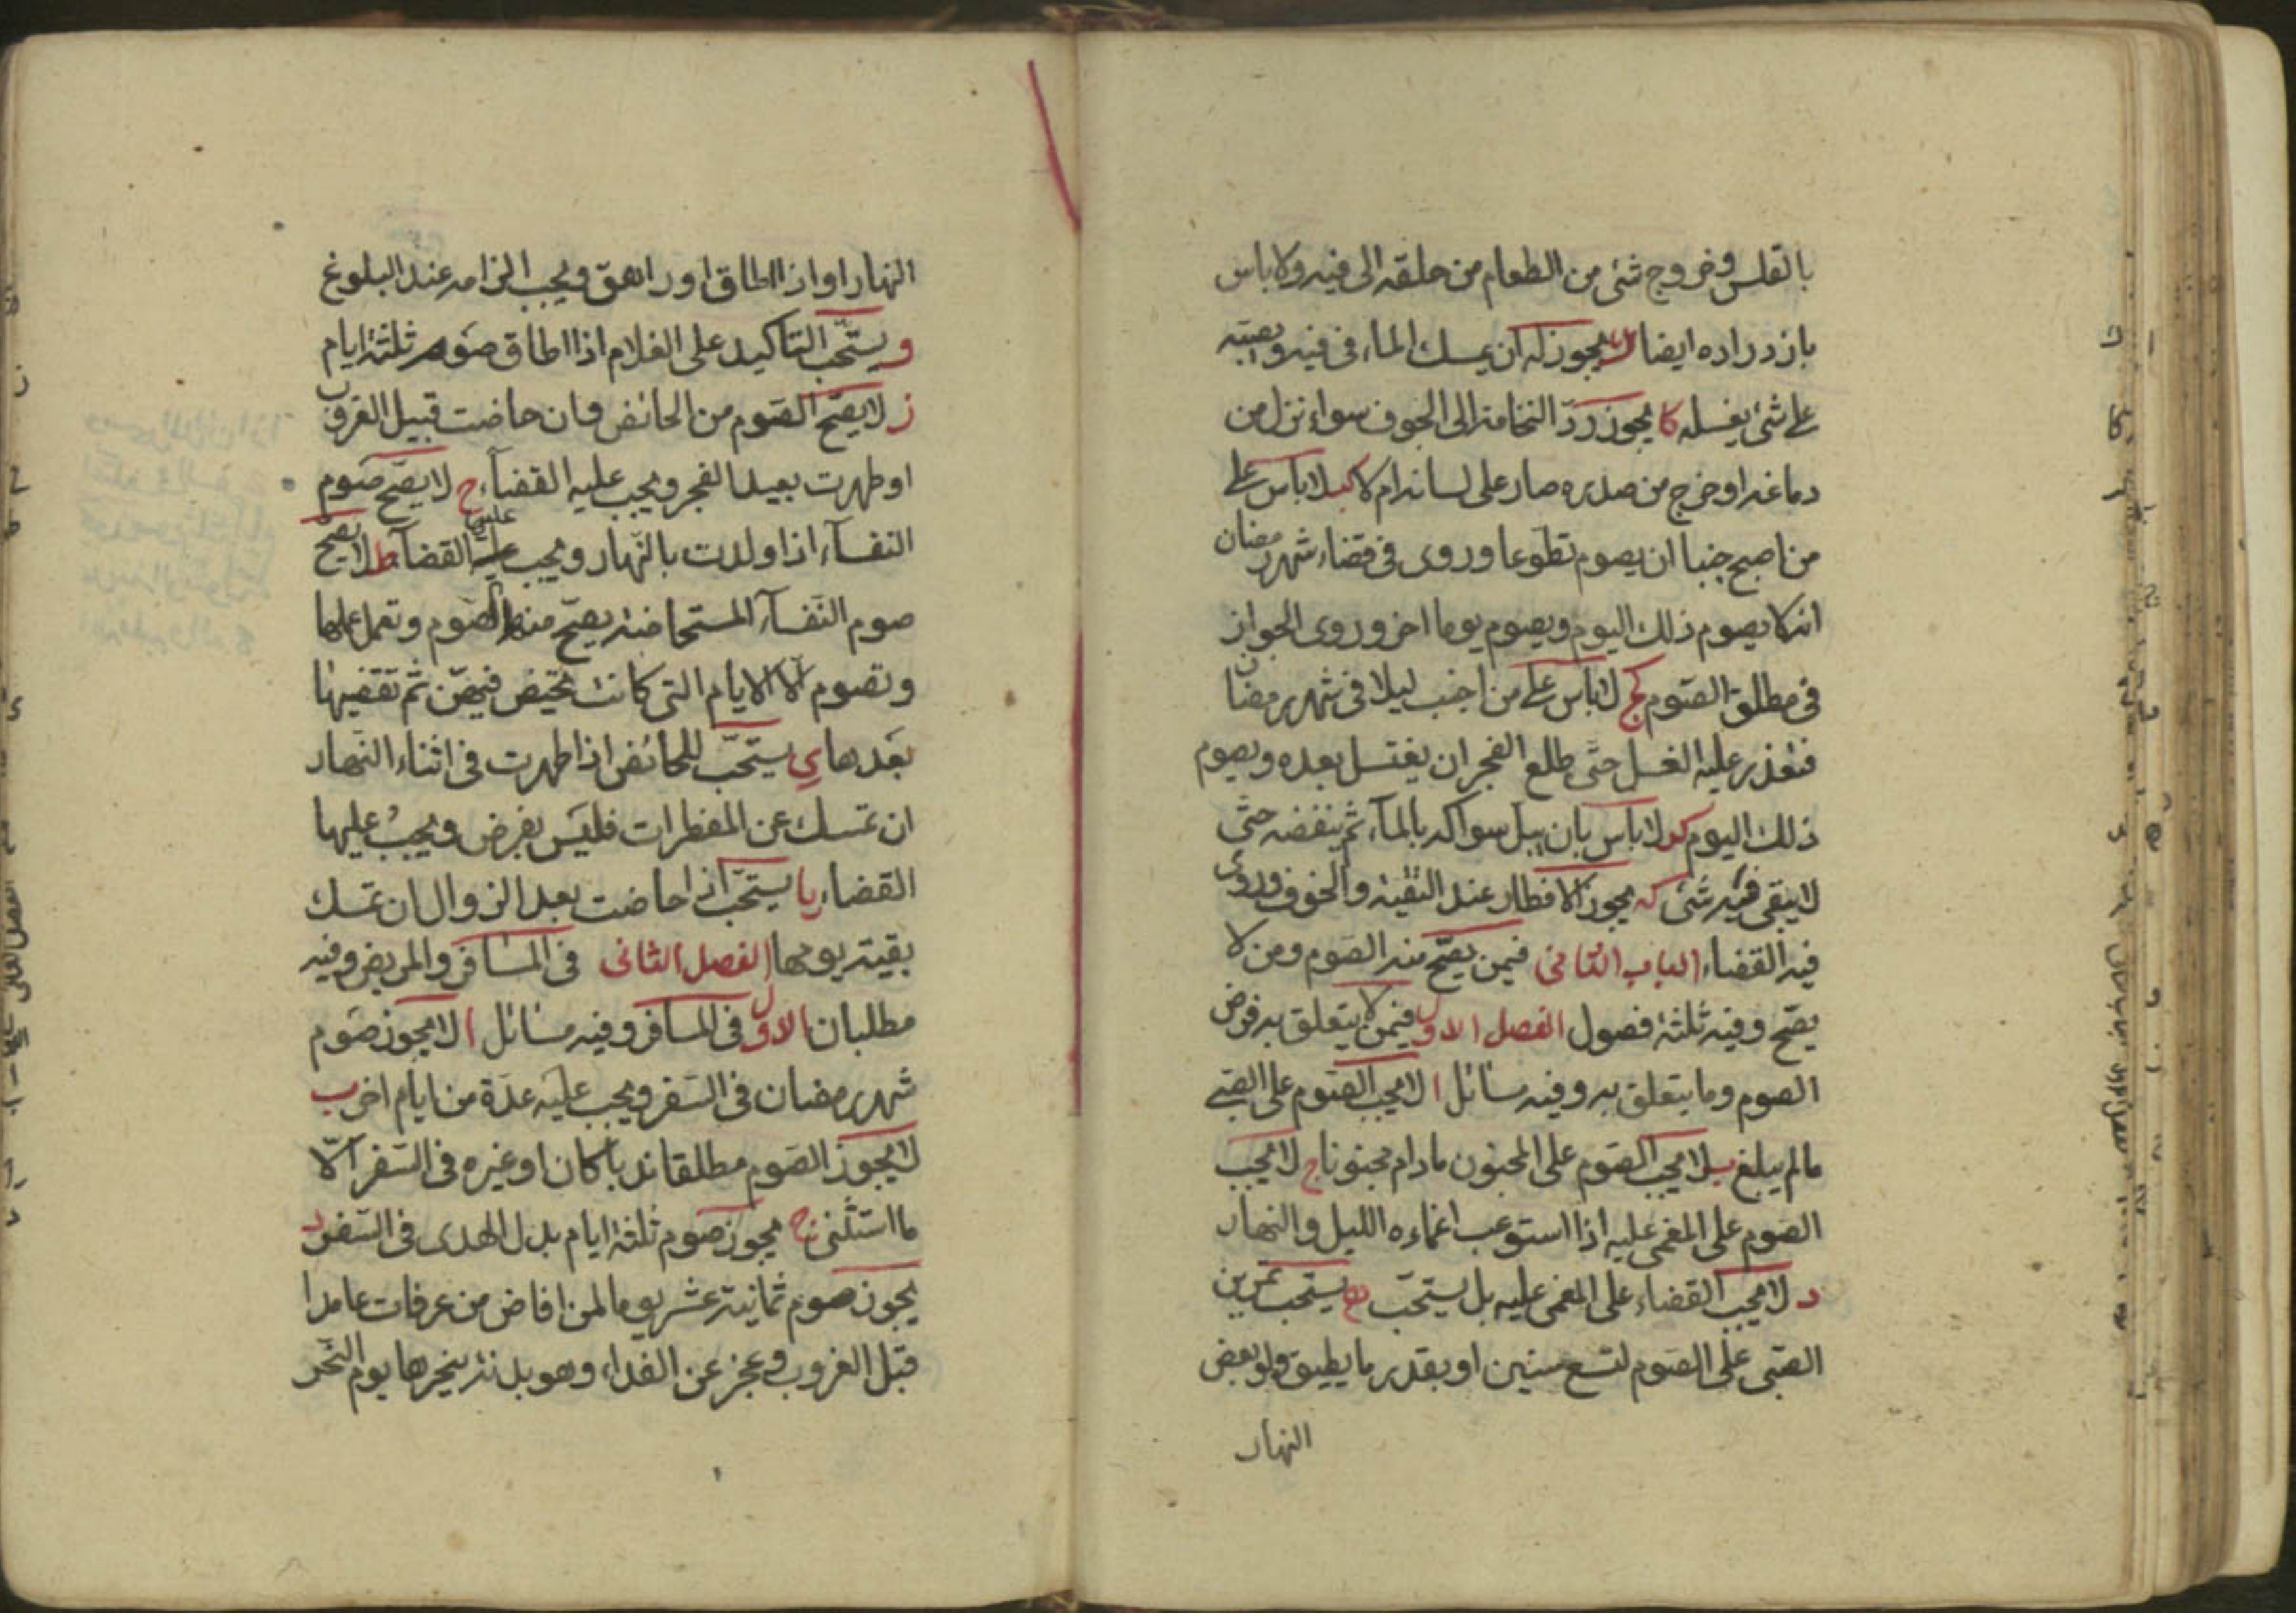 بالقلس وخروج شئ من الطعام من حلقه الى فيه ولا باس
بازدراده ايضا ك يجوز له ان يمسك الماء فى فيه ويصبه
على شئ يغسله كا يجوز ردّ النخامة الى الجوف سواء نزل من
دماغه او خرج من صدره صار على لسانه ام لا كب لا باس على
من اصبح جنبا ان يصوم تطوعا وروى فى قضاء شهر رمضان
انه لا يصوم ذلك اليوم ويصوم يوما اخر وروى الجواز
فى مطلق الصّوم كج لا باس على من اجنب ليلا فى شهر رمضان
فتعذر عليه الغسل حتّى طلع الفجر ان يغتسل بعده ويصوم
ذلك اليوم كد لا باس بان يبل سواكه بالمآء ثم ينفضه حتّى
لا يبقى فيه شئ كه يجوز الافطار عند التقيّة والخوف وروى
فيه القضاء الباب الثانى فيمن يصحّ منه الصّوم ومن لا
يصّح وفيه ثلثة فصول الفصل الاول فيمن لا يتعلق به فرض
الصوم وما يتعلق به وفيه مسائل ا لا يجب الصّوم على الصّبى
مالم يبلغ ب لا يجب الصّوم على المجنون مادام مجنونا ج لا يجب
الصّوم على المغمى عليه اذا استوعب اغماءه الليل والنهار
د لا يجب القضاء على المغمى عليه بل يستحّب ه يستحب تمرين
الصّبى على الصّوم لتسع سنين او بقدر ما يطيق ولو بعض
النهار
النهار او اذا اطاق او راهق ويجب الزامه عند البلوغ
و يستحّب التاكيد على الغلام اذا اطاق صوم ثلثة ايام
ز لا يصّح الصّوم من الحائض وان حاضت قبيل الغروب
او طهرت بعيد الفجر ويجب عليه القضآء ح لا يصّح صوم
النفسآء اذا ولدت بالنّهار ويجب عليها القضآء ط لا يصح
صوم النّفسآء المستحاضة يصحّ منها الصّوم وتعمل عملها
وتصوم الّا الايام التى كانت تحيض فيهنّ ثم تقضيها
بعدها ى يستحّب للحائض اذا طهرت فى اثناء النّهار
ان تمسك عن المفطرات فليس بفرض ويجب عليها
القضاء يا يستحّب اذا حاضت بعد الزوال ان تمسك
بقية يومها الفصل الثانى فى المسافر والمريض وفيه
مطلبان الاول فى المسافر وفيه مسائل ا لا يجوز صوم
شهر رمضان فى السّفر ويجب عليه عدة من ايام اخر ب
لا يجوز الصّوم مطلقا ندبا كان او غيره فى السّفر الّا
ما استثنى ج يجوز صوم ثلثة ايام بدل الهدى فى السّفر د
يجوز صوم ثمانية عشر يوما لمن افاض من عرفات عامدا
قبل الغروب وعجز عن الفداء وهو بدنة ينحرها يوم النّحر